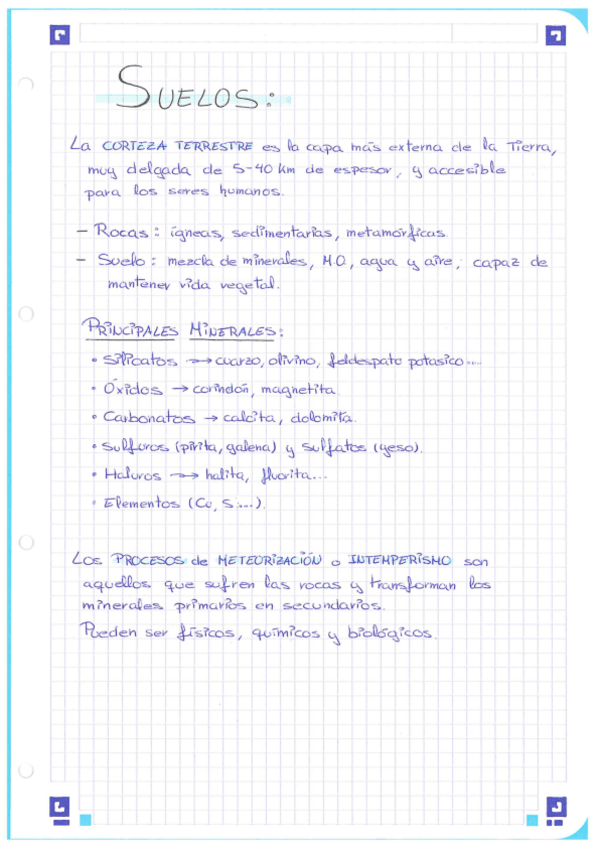 SUELOS:
La CORTEZA TERRESTRE es la capa más externa de la Tierra,
muy delgada de 5-40 km de espesor, y accesible
para los seres humanos.
- Rocas: ígneas, sedimentarias, metamórficas.
- Suelo: mezcla de minerales, M.O, agua y aire, capaz de
mantener vida vegetal.
PRINCIPALES MINERALES:
• Silicatos → cuarzo, olivino, feldespato potasico...
• Óxidos → corindón, magnetita.
• Carbonatos → calcita, dolomita.
• Sulfuros (pirita, galena) y sulfatos (yeso).
• Haluros → halita, fluorita...
• Elementos (Cu, S...).
Los PROCESOS de METEORIZACIÓN o INTEMPERISMO son
aquellos que sufren las rocas y transforman los
minerales primarios en secundarios.
Pueden ser físicos, químicos y biológicos.